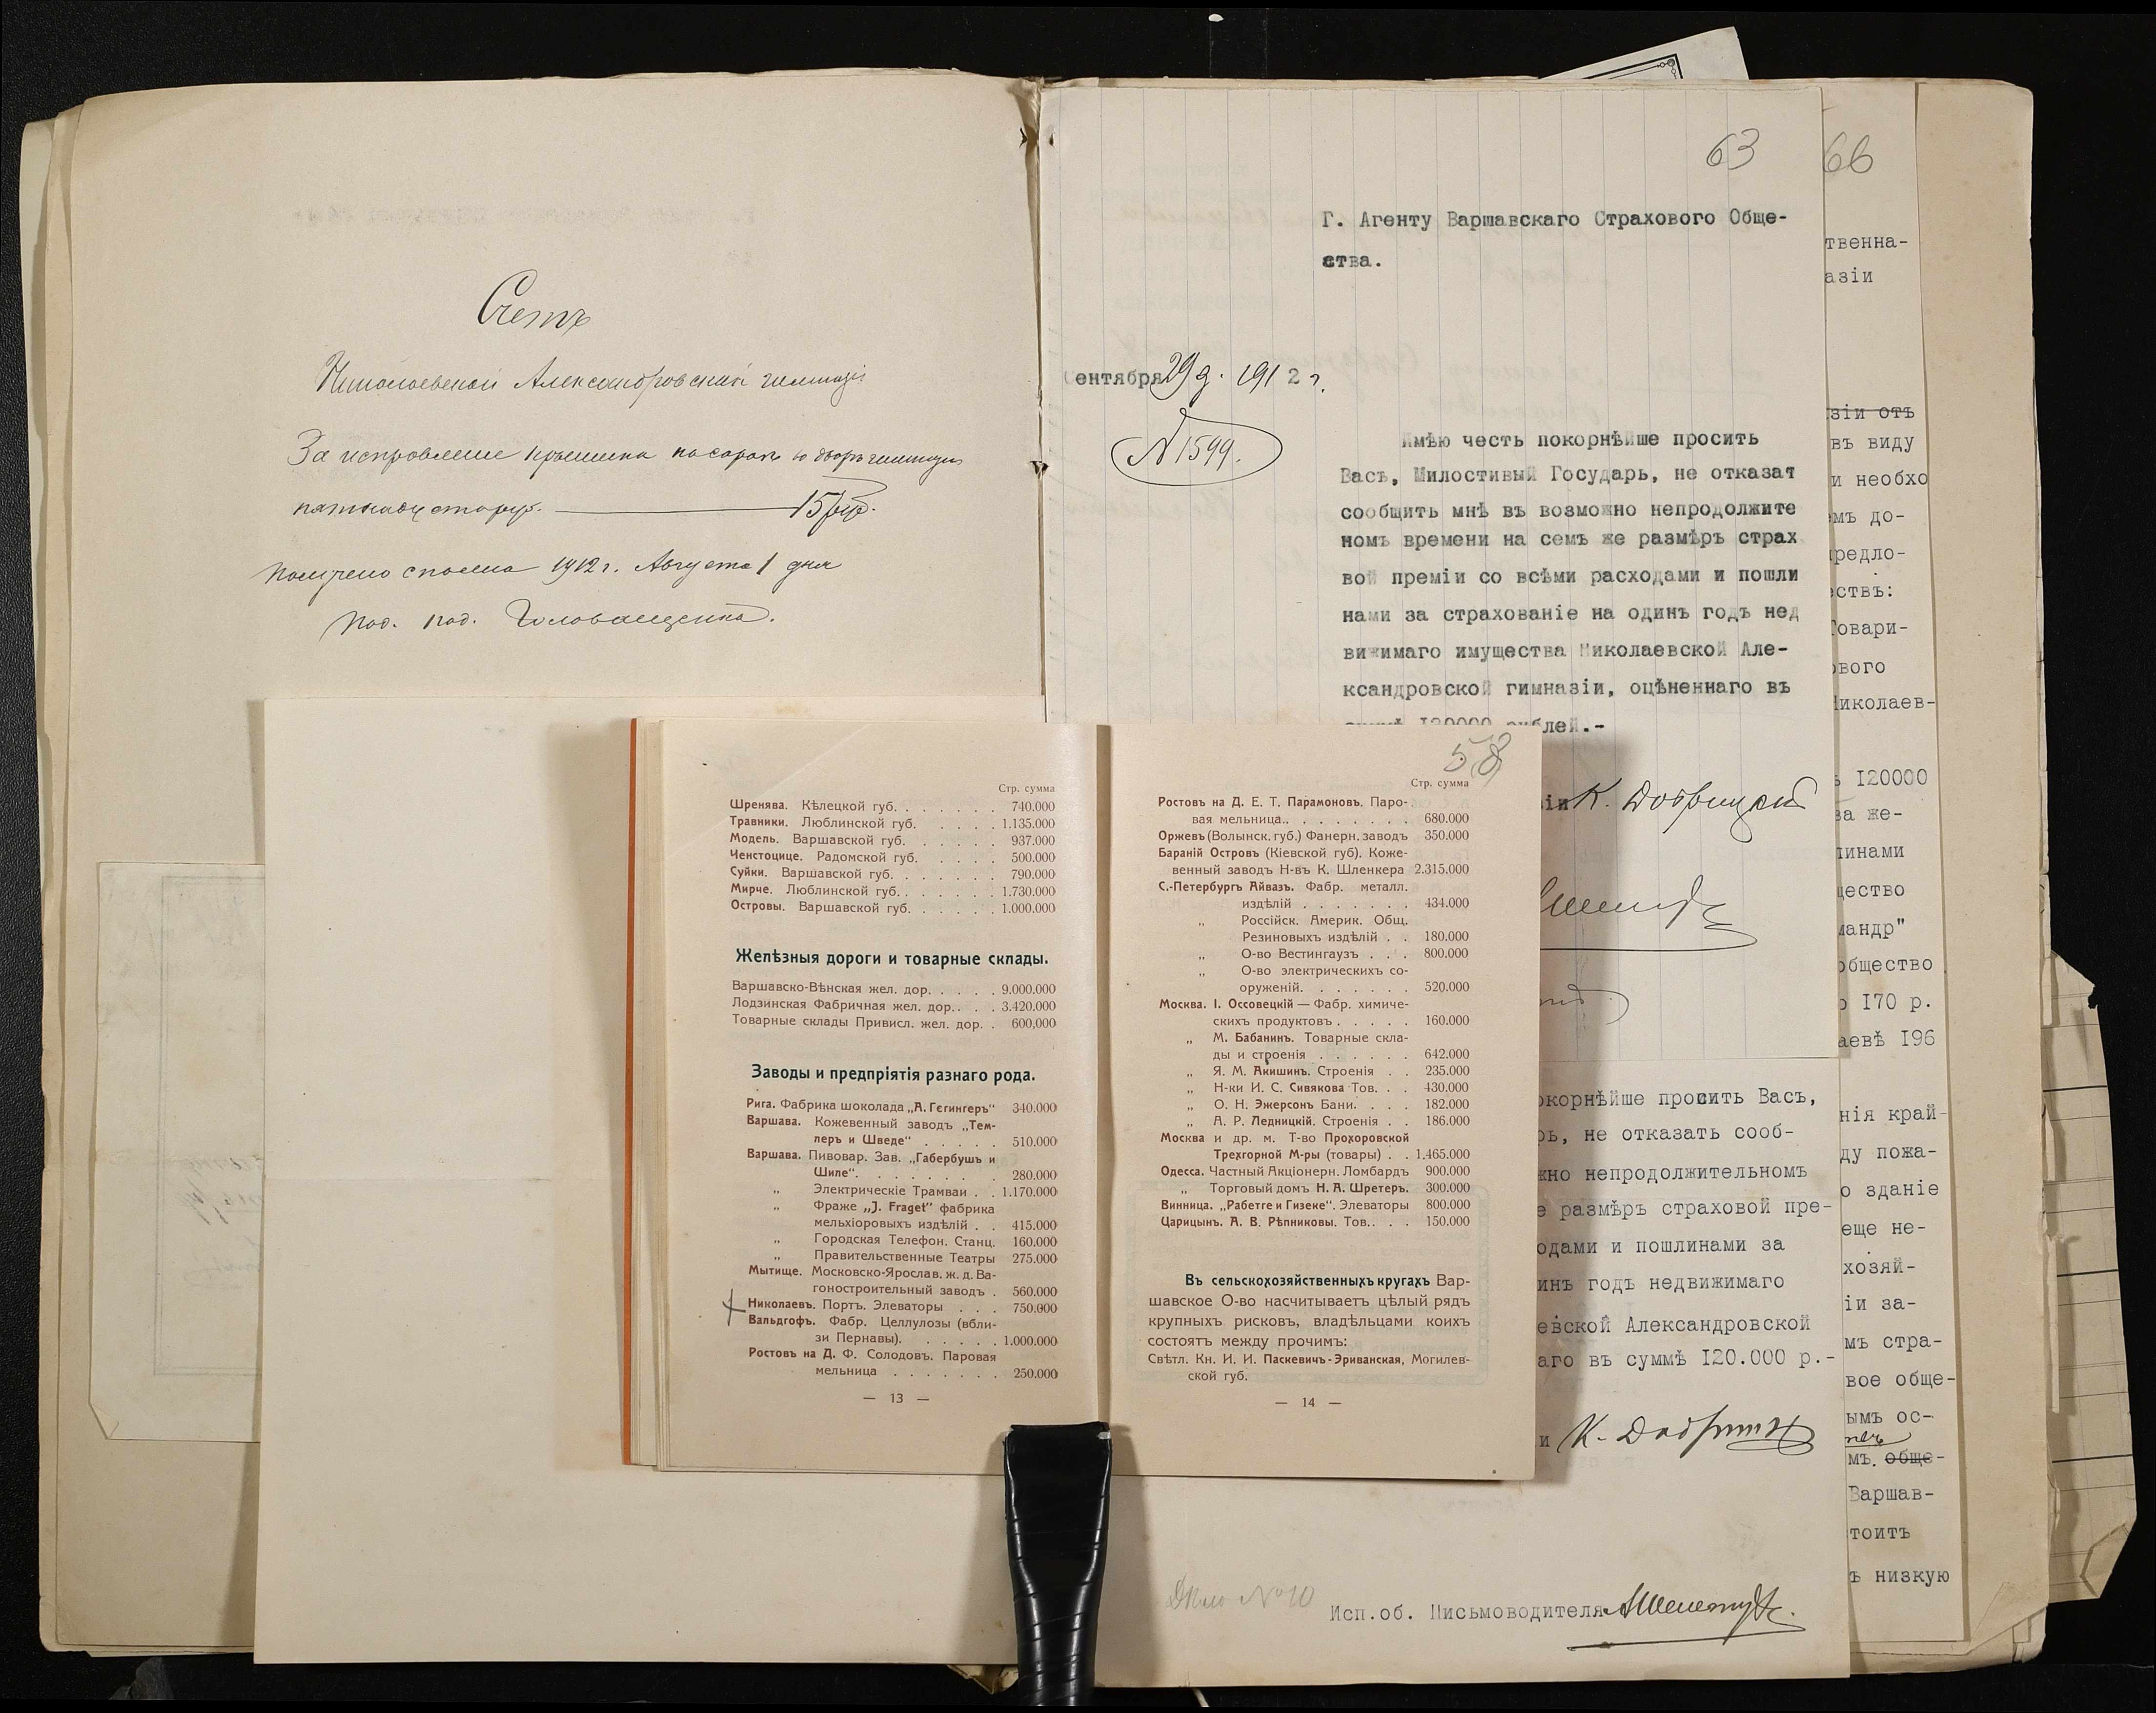 Счетъ
Николаевской Александровской гимназіи
За исправленіе крышика на сараѣ во дворѣ гимназіи
пятнадцать руб. 15 руб.
Получено сполна 1912 г. Августа 1 дня
63
Г. Агенту Варшавскаго Страхового Обще-
ства.
ентября 29 д. 1912 г.
N 1599.
Имѣю честь покорнѣйше просить
Васъ, Милостивый Государь, не отказат
сообщить мнѣ въ возможно непродолжите
номъ времени на семъ же размѣръ страх
вой преміи со всѣми расходами и пошли
нами за страхованіе на одинъ годъ нед
вижимаго имущества Николаевской Але-
ксандровской гимназіи, оцѣненнаго въ
суммѣ 120000 рублей.-
іи К.
66
твенна-
азіи
зіи отъ
въ виду
и необхо
мъ до-
редло-
ствъ:
Товари-
ового
Николаев-
120000
ва же-
линами
щество
мандр"
общество
о 170 р.
аевѣ 196
нія край-
ду пожа-
о зданіе
еще не-
хозяй-
іи за-
мъ стра-
вое обще-
ымъ ос-
мъ. обще-
Варшав-
тоитъ
ъ низкую
Стр. сумма
Шренява. Кѣлецкой губ. . . . . . . 740.000
Травники. Люблинской губ. . . . . 1.135.000
Модель. Варшавской губ. . . . . . 937.000
Ченстоцице. Радомской губ. . . . . 500.000
Суйки. Варшавской губ. . . . . . . 790.000
Мирче. Люблинской губ. . . . . . . 1.730.000
Островы. Варшавской губ. . . . . . 1.000.000
Желѣзныя дороги и товарные склады.
Варшавско-Вѣнская жел. дор. . . . . 9.000.000
Лодзинская Фабричная жел. дор. . . . 3.420.000
Товарные склады Привисл. жел. дор. . 600,000
Заводы и предпріятія разнаго рода.
Рига. Фабрика шоколада „А. Гегингеръ“ 340.000
Варшава. Кожевенный заводъ „Тем-
леръ и Шведе“ . . . . . 510.000
Варшава. Пивовар. Зав. „Габербушъ и
Шиле“. . . . . . . . 280.000
„ Электрическіе Трамваи . . 1.170.000
„ Фраже „J. Fraget“ фабрика
мельхіоровыхъ издѣлій . . 415.000
„ Городская Телефон. Станц. 160.000
„ Правительственные Театры 275.000
Мытище. Московско-Ярослав. ж. д. Ва-
гоностроительный заводъ . 560.000
Николаевъ. Портъ. Элеваторы . . . 750.000
Вальдгофъ. Фабр. Целлулозы (вбли-
зи Пернавы). . . . . . 1.000.000
Ростовъ на Д. Ф. Солодовъ. Паровая
мельница . . . . . . . 250.000
— 13 —
58
Стр. сумма
Ростовъ на Д. Е. Т. Парамоновъ. Паро-
вая мельница. . . . . . . . 680.000
Оржевъ (Волынск. губ.) Фанерн. заводъ 350.000
Бараній Островъ (Кіевской губ). Коже-
венный заводъ Н-въ К. Шленкера 2.315.000
С.-Петербургъ Айвазъ. Фабр. металл.
издѣлій . . . . . . . 434.000
„ Россійск. Америк. Общ.
Резиновыхъ издѣлій . . 180.000
„ О-во Вестингаузъ . . . 800.000
„ О-во электрическихъ со-
оруженій. . . . . . . 520.000
Москва. І. Оссовецкій — Фабр. химиче-
скихъ продуктовъ . . . . . 160.000
„ М. Бабанинъ. Товарные скла-
ды и строенія . . . . . . 642.000
„ Я. М. Акишинъ. Строенія . . 235.000
„ Н-ки И. С. Сивякова Тов. . . 430.000
„ О. Н. Эжерсонъ Бани. . . . 182.000
„ А. Р. Ледницкій. Строенія . . 186.000
Москва и др. м. Т-во Прохоровской
Трехгорной М-ры (товары) . . 1,465.000
Одесса. Частный Акціонерн. Ломбардъ 900.000
„ Торговый домъ Н. А. Шретеръ. 300.000
Винница. „Рабетге и Гизеке“. Элеваторы 800.000
Царицынъ. А. В. Рѣпниковы. Тов. . . . 150.000
Въ сельскохозяйственныхъ кругахъ Вар-
шавское О-во насчитываетъ цѣлый рядъ
крупныхъ рисковъ, владѣльцами коихъ
состоятъ между прочимъ:
Свѣтл. Кн. И. И. Паскевичъ-Эриванская, Могилев-
ской губ.
— 14 —
окорнѣйше просить Васъ,
рь, не отказать сооб-
жно непродолжительномъ
е размѣръ страховой пре-
одами и пошлинами за
инъ годъ недвижимаго
евской Александровской
аго въ суммѣ 120.000 р.-
и К.
Дѣло №10
Исп.об. Письмоводителя